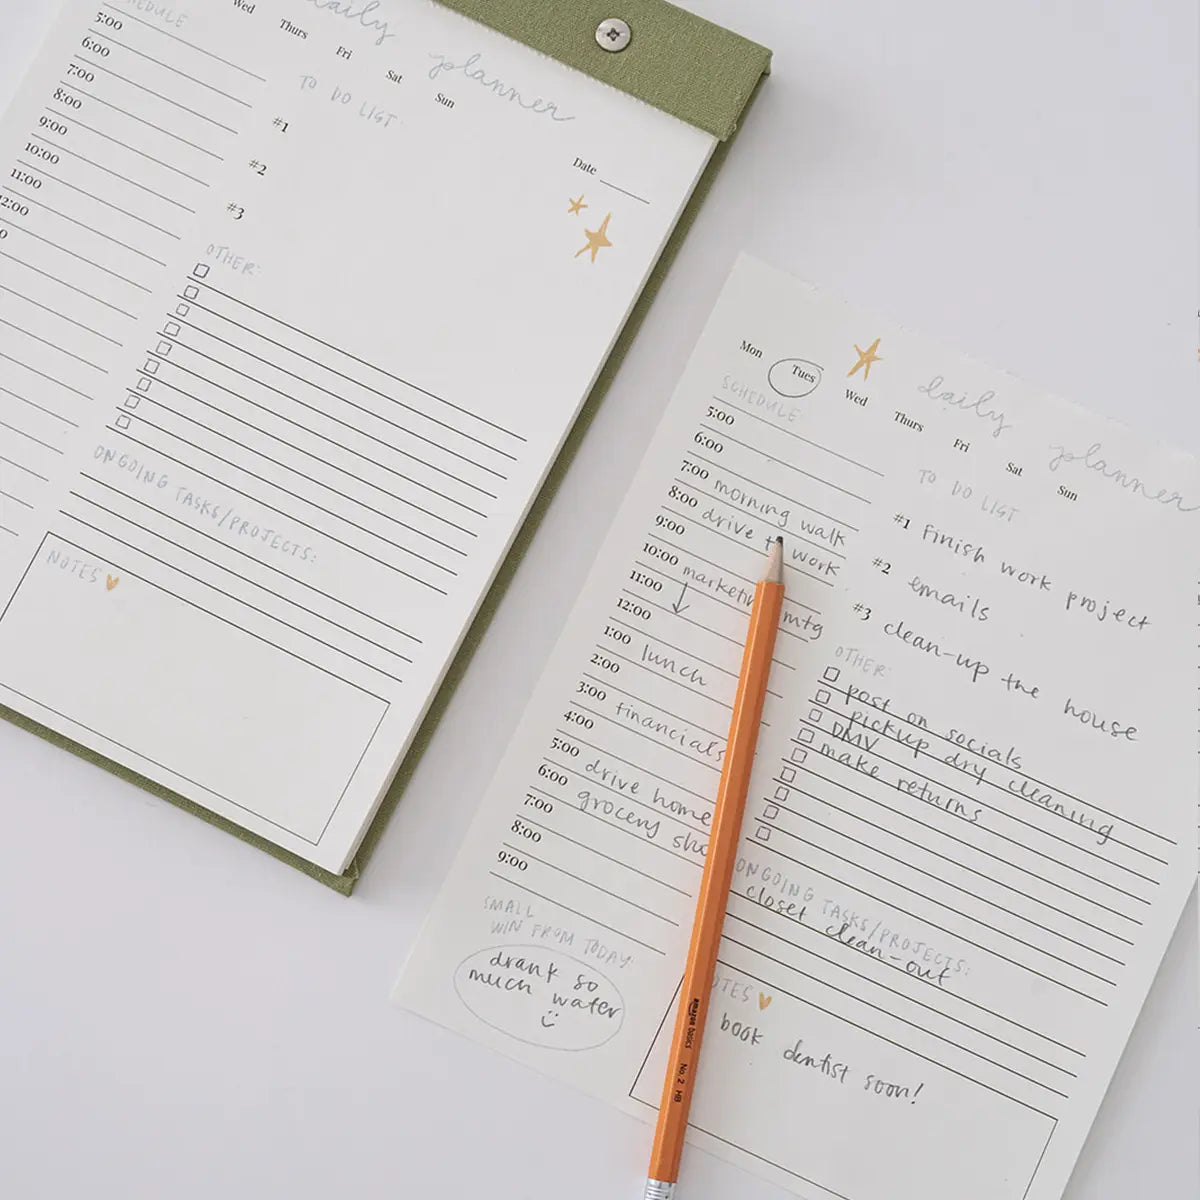 daily planner
Wed Thurs Fri Sat Sun
5:00
6:00
7:00
8:00
9:00
10:00
11:00
12:00
TO DO LIST:
#1
#2
#3
Date
OTHER:
ONGOING TASKS/PROJECTS:
NOTES
daily planner
Mon Tues Wed Thurs Fri Sat Sun
SCHEDULE:
5:00
6:00
7:00 morning walk
8:00 drive to work
9:00
10:00 marketing mtg
11:00
12:00
1:00 lunch
2:00
3:00 financials
4:00
5:00 drive home
6:00 grocery
7:00
8:00
9:00
SMALL
WIN FROM TODAY:
drank so
much water
TO DO LIST
#1 Finish work project
#2 emails
#3 clean-up the house
OTHER:
post on socials
pickup dry cleaning
DMV
make returns
ONGOING TASKS/PROJECTS:
closet clean-out
book dentist soon!
amazon basics No. 2 HB